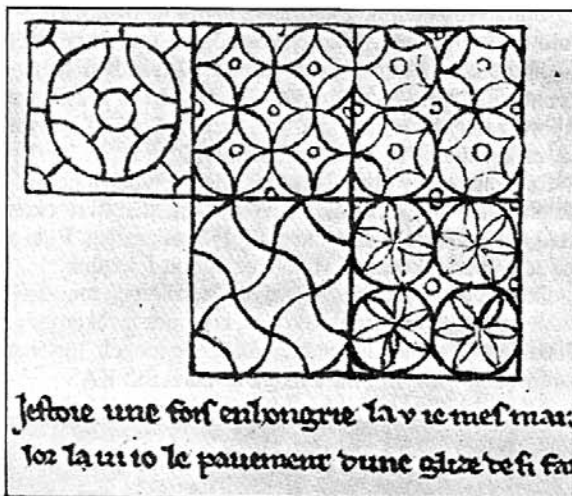 Jestoie une fois enhongrie la v ie mes mainz
loz la ui io le pauement dune glize desi fai